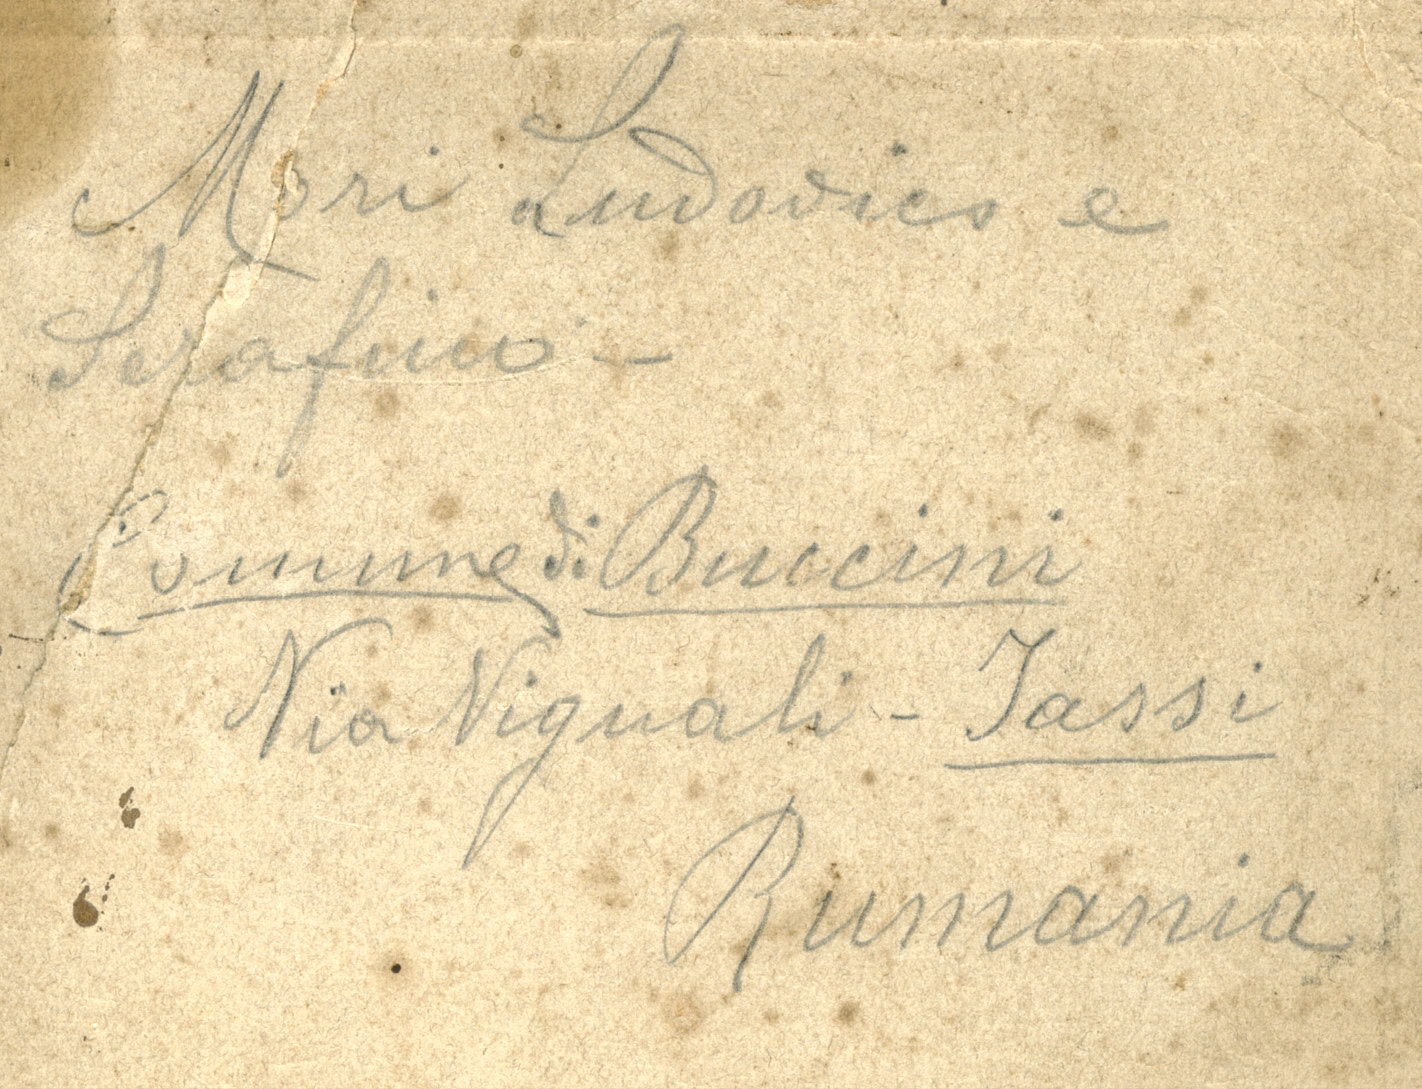 Mori Ludovico e
Serafino -
Comune di Buccini
Via Vignali - Jassi
Rumania